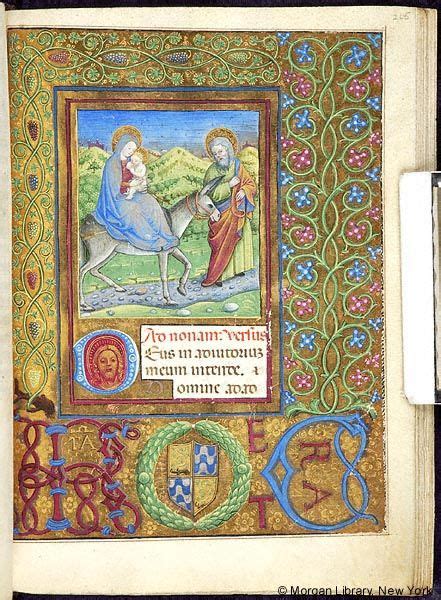 205
Ad nonam: Versus
Eus in adiutorium
meum intende. &
omine ad ad
IA
E
T
RA
© Morgan Library, New York